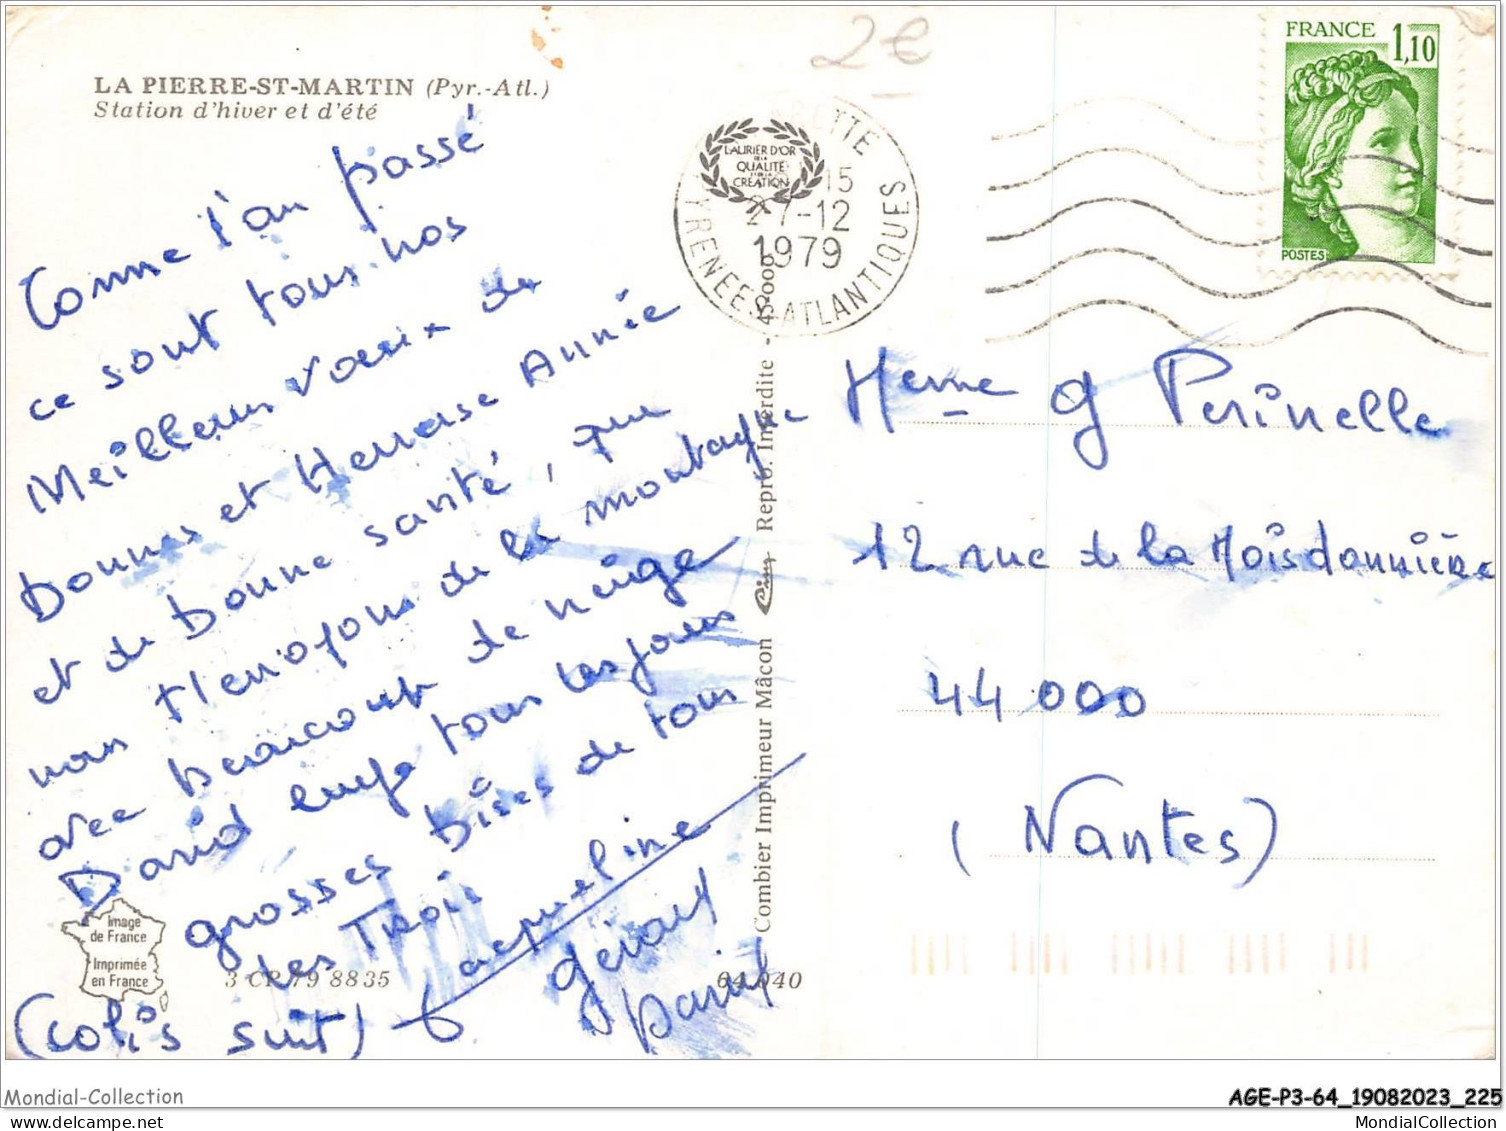 LA PIERRE-ST-MARTIN (Pyr.-Atl.)
Station d'hiver et d'été
2€
FRANCE 1,10
POSTES
LAURIER D'OR
DE LA
QUALITÉ
CRÉATION
15
27-12
1979
PYRENEES-ATLANTIQUES
Comme l'an passé
ce sont tous nos
Meilleurs vœux de
Bonnes et Heureuse Année
et de bonne santé, que
nous de la montagne
avec beaucoup de neige
David tous les jours
grosses bises de tous
les Trois
Jacqueline
Gérard
David
(colis suit)
Image
de France
Imprimée
en France
3 CP 79 8835
64.040
Combier Imprimeur Mâcon Cim Reprod. Interdite -
Meme G Perinelle
12 rue de la Moisdonnière
44 000
(Nantes)
Mondial-Collection
AGE-P3-64_19082023_225
MondialCollection